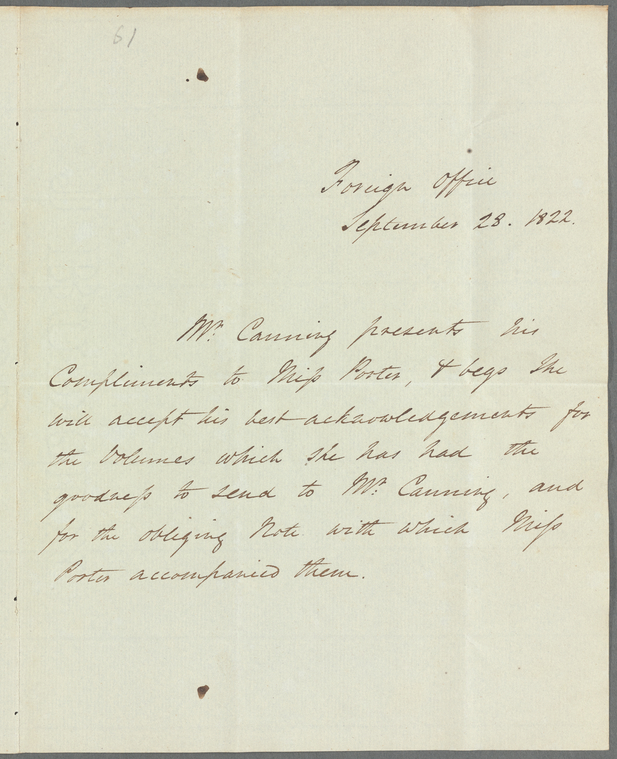 61
Foreign Office
September 28. 1822.
Mr. Canning presents his
Compliments to Miss Porter, & begs She
will accept his best acknowledgements for
the Volumes which She has had the
goodness to send to Mr. Canning, and
for the obliging Note with which Miss
Porter accompanied them.